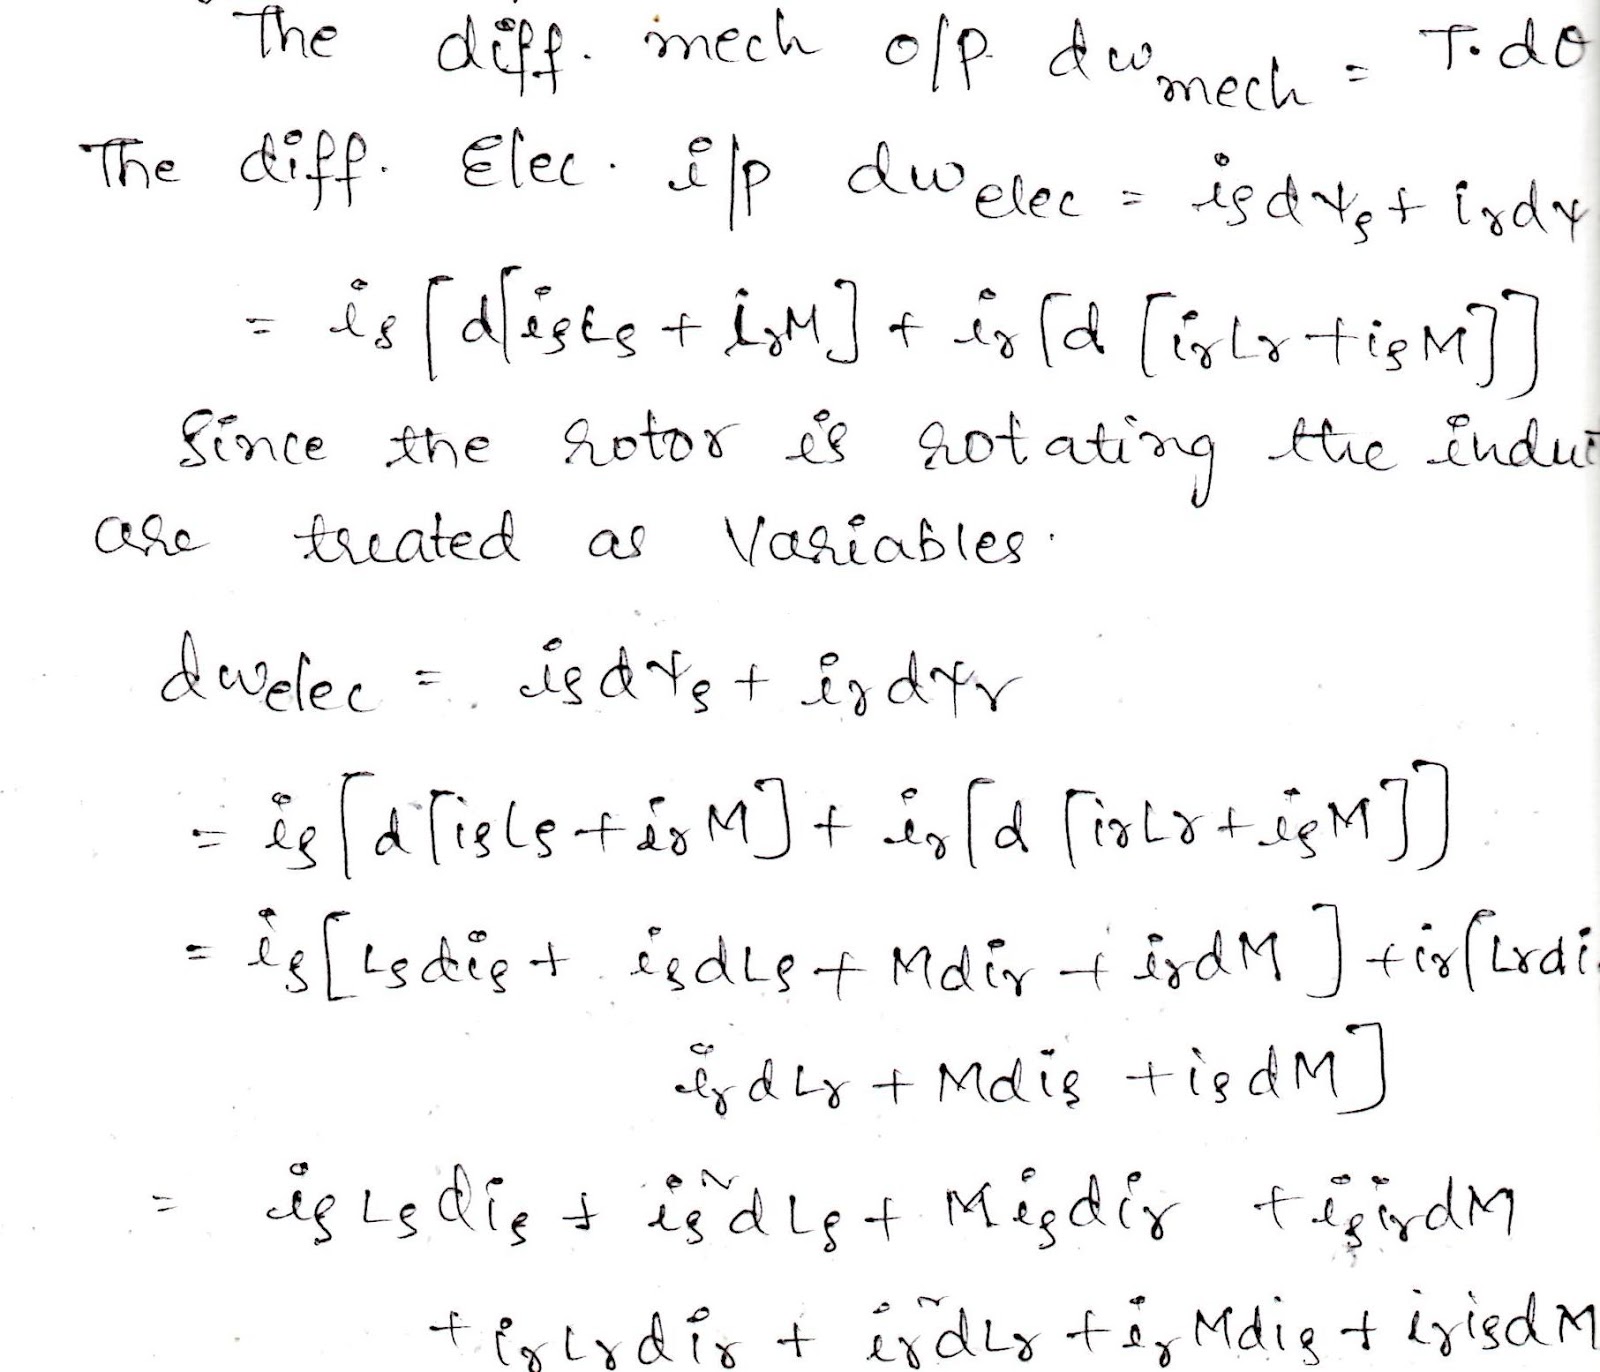 The diff. mech o/p dw mech = T.dθ
The diff. Elec. i/p dw elec = is dψs + ir dψ
= is [d[is Ls + ir M] + ir [d [ir Lr + is M]]
Since the rotor is rotating the induc
are treated as Variables.
dw elec = is dψs + ir dψr
= is [d [is Ls + ir M] + ir [d [ir Lr + is M]]
= is [Ls dis + is dLs + M dir + ir dM] + ir [Lr di
ir dLr + M dis + is dM]
= is Ls dis + is² dLs + M is dir + is ir dM
+ ir Lr dir + ir² dLr + ir M dis + ir is dM